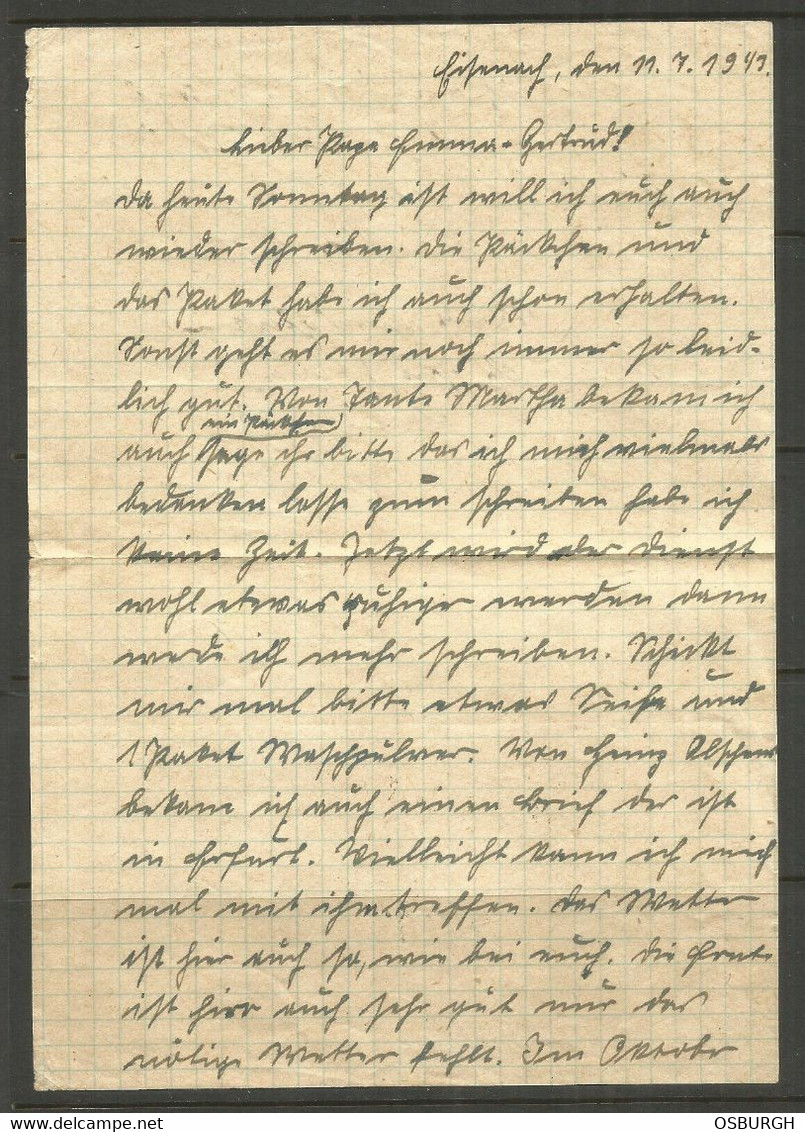 Eisenach, den 11.7.1943.
Lieber Papa Emma-Gertrud!
Da heute Sonntag ist will ich euch auch
wieder schreiben. Die Päckchen und
das Paket habe ich auch schon erhalten.
Sonst geht es mir noch immer so leid-
lich gut. Von Tante Martha bekam ich
ein Päckchen
auch sage ihr bitte das ich mich vielmals
bedanken lasse zum schreiben habe ich
keine Zeit. Jetzt wird der Dienst
wohl etwas ruhiger werden dann
werde ich mehr schreiben. Schickt
mir mal bitte etwas Seife und
1 Paket Waschpulver. Von Heinz
bekam ich auch einen Brief der ist
in Erfurt. Vielleicht kann ich mich
mal mit ihm treffen. Das Wetter
ist hier auch so, wie bei euch. Die Ernte
ist hier auch sehr gut nur das
nötige Wetter fehlt. Im Oktober
OSBURGH